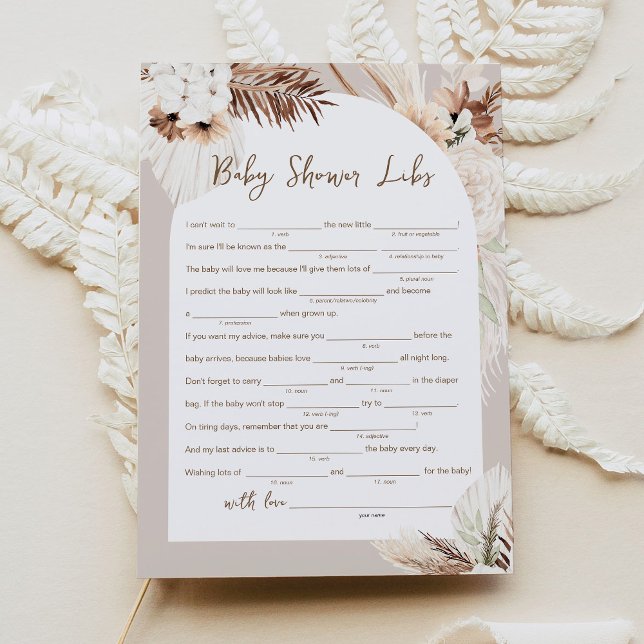 Baby Shower Libs
I can't wait to ____________________ the new little ____________________!
1. verb 2. fruit or vegetable
I'm sure I'll be known as the ____________________ ____________________.
3. adjective 4. relationship to baby
The baby will love me because I'll give them lots of ____________________.
5. plural noun
I predict the baby will look like ____________________ and become
6. parent/relative/celebrity
a ____________________ when grown up.
7. profession
If you want my advice, make sure you ____________________ before the
8. verb
baby arrives, because babies love ____________________ all night long.
9. verb (-ing)
Don't forget to carry ________________ and ________________ in the diaper
10. noun 11. noun
bag. If the baby won't stop __________________ try to __________________.
12. verb (-ing) 13. verb
On tiring days, remember that you are ____________________!
14. adjective
And my last advice is to ____________________ the baby every day.
15. verb
Wishing lots of ____________________ and ____________________ for the baby!
16. noun 17. noun
with love ________________________________________
your name